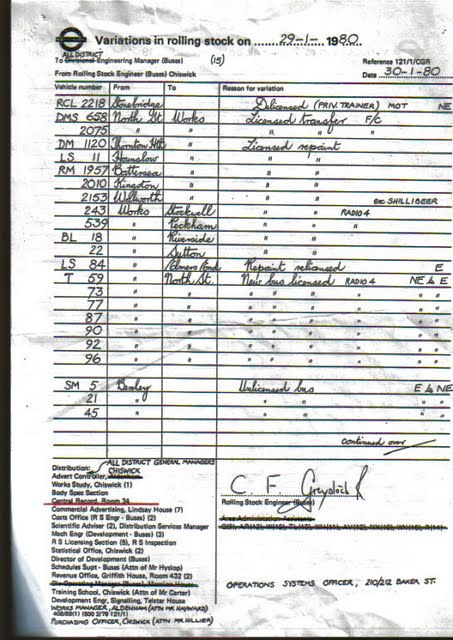 Variations in rolling stock on 29-1- 1980
ALL DISTRICT (15)
To Divisional Engineering Manager (Buses) Reference 121/1/CGR
From Rolling Stock Engineer (Buses) Chiswick Date 30-1-80
Vehicle number From To Reason for variation
RCL 2218 Stonebridge Delicensed (PRIV. TRAINER) MOT NE
DMS 658 North St Works Licensed transfer F/C
2075 " " " " "
DM 1120 Thornton Hth " Licensed repaint
LS 11 Hounslow " " "
RM 1957 Battersea " " "
2010 Kingston " " "
2153 Walworth " " " ex SHILLIBEER
243 Works Stockwell " " RADIO 4
539 " Peckham " "
BL 18 " Riverside " "
22 " Sutton " "
LS 84 " Elmers End Repaint relicensed E
T 59 " North St. New bus licensed RADIO 4 NE & E
73 " " " " " " " "
77 " " " " " " " "
87 " " " " " " " "
90 " " " " " " " "
92 " " " " " " " "
96 " " " " " " " "
SM 5 Bexley Unlicensed bus E & NE
21 " " " " "
45 " " " " "
continued over
Distribution: ALL DISTRICT GENERAL MANAGERS
CHISWICK
Advert Controller,
Works Study, Chiswick (1)
Body Spec Section
Central Record, Room 34
Commercial Advertising, Lindsay House (7)
Costs Office (R S Engr - Buses) (2)
Scientific Adviser (2), Distribution Services Manager
Mech Engr (Development - Buses)
R S Licensing Section (5), R S Inspection
Statistical Office, Chiswick (2)
Director of Development (Buses)
Schedules Supt - Buses (Attn of Mr Hyslop)
Revenue Office, Griffith House, Room 432 (2)
Training School, Chiswick (Attn of Mr Carter)
Development Engr, Signalling, Telster House
WORKS MANAGER, ALDENHAM (ATTN MR HAYWARD)
PURCHASING OFFICER, CHISWICK (ATTN MR HILLIER)
C. F.
Rolling Stock Engineer (Buses)
Area Administration Assistants
OPERATIONS SYSTEMS OFFICER, 210/212 BAKER ST.